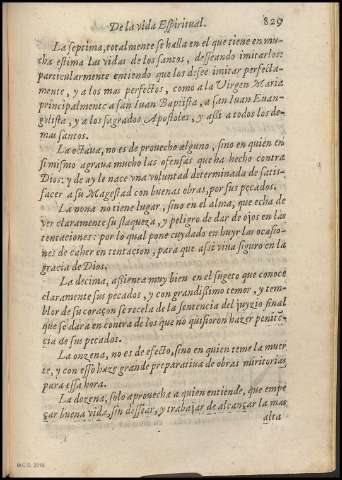 De la vida Espiritual. 829
La septima, totalmente se halla en el que tiene en mu-
cha estima las vidas de los santos, desseando imitarlos:
particularmente entiendo que los dessee imitar perfecta-
mente, y a los mas perfectos, como a la Virgen Maria
principalmente a san Iuan Baptista, a san Iuan Euan-
gelista, y a los sagrados Apostoles, y assi a todos los de-
mas santos.
La octaua, no es de prouecho alguno, sino en quien en
si mismo agraua mucho las ofensas que ha hecho contra
Dios: y de ay le nace vna voluntad determinada de satis-
facer a su Magestad con buenas obras, por sus pecados.
La nona no tiene lugar, sino en el alma, que echa de
ver claramente su flaqueza, y peligro de dar de ojos en las
tentaciones: por lo qual pone cuydado en huyr las ocasio-
nes de caher en tentacion, para que assi viua siguro en la
gracia de Dios.
La decima, assienta muy bien en el sugeto que conoce
claramente sus pecados, y con grandissimo temor, y tem-
blor de su coraçon se recela de la sentencia del juyzio final
que se dara en contra de los que no quisieron hazer peniten-
cia de sus pecados.
La onzena, no es de efecto, sino en quien teme la muer
te, y con esso haze grande preparatiua de obras miritorias
para essa hora.
La dozena, solo aprouecha a quien entiende, que empe
çar buena vida, sin dessear, y trabajar de alcançar la mas
alta